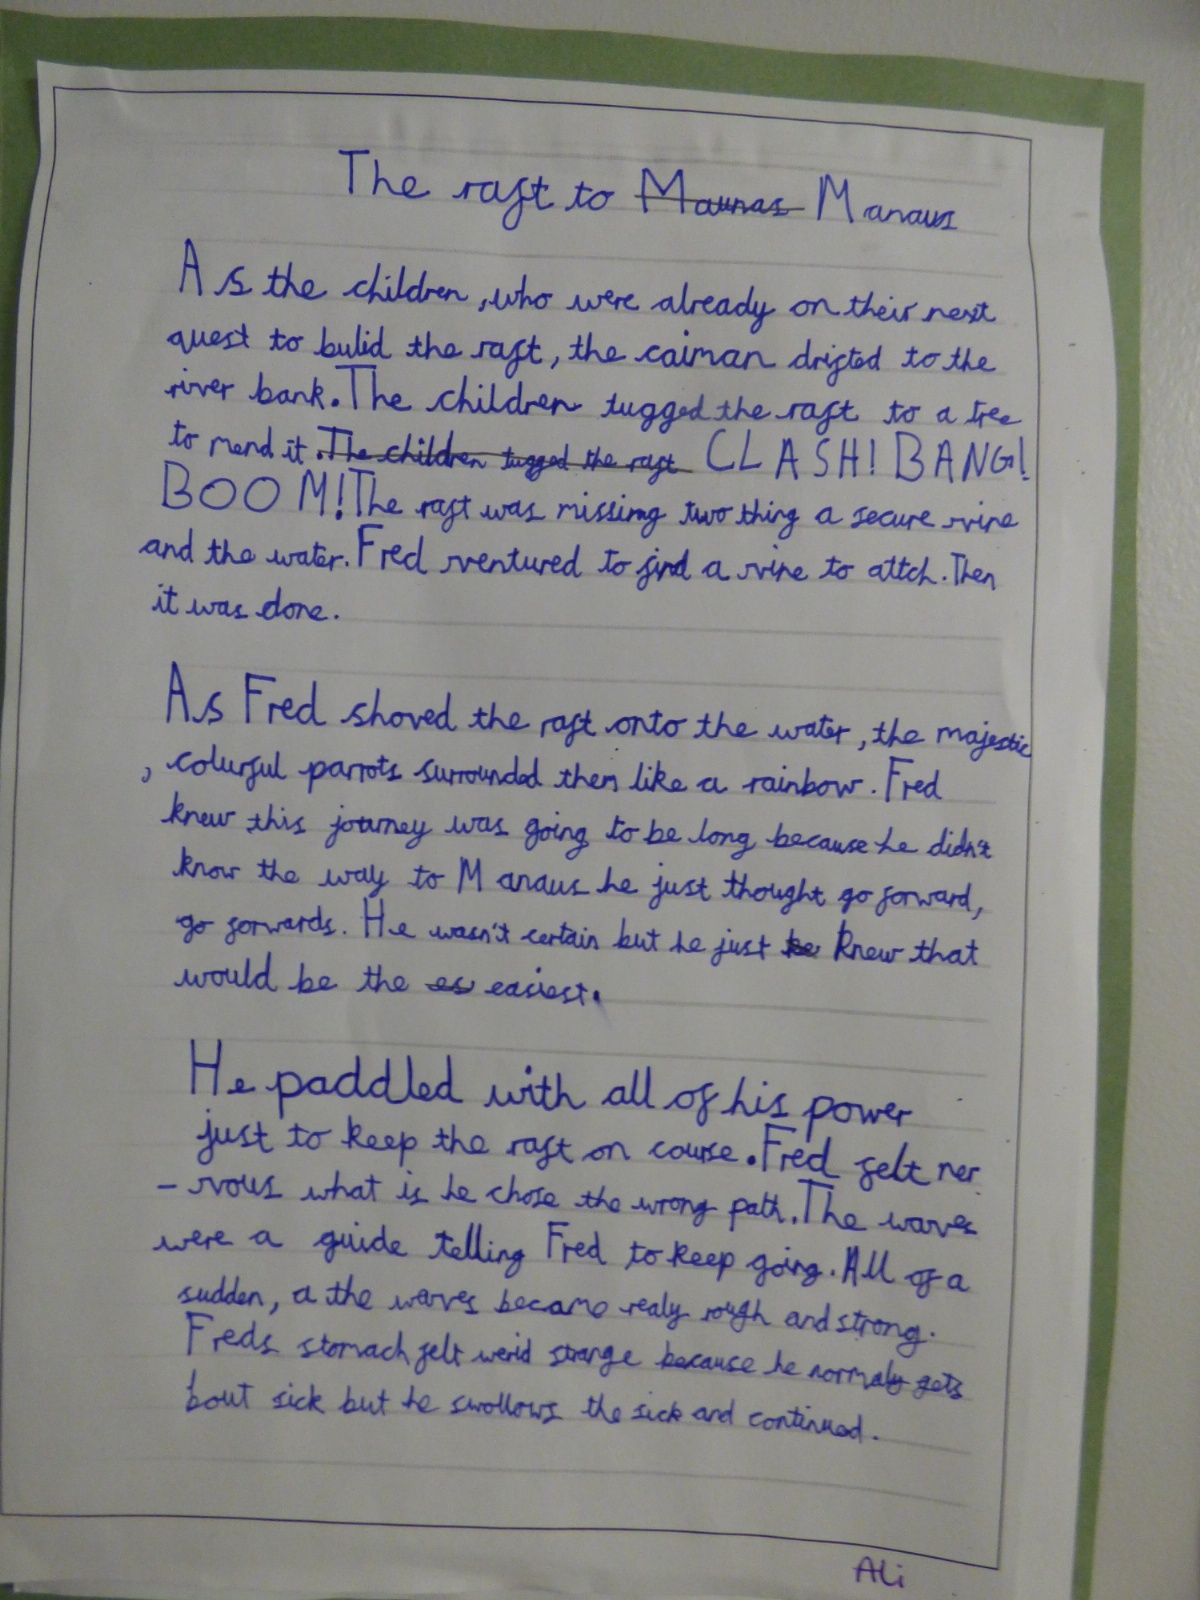 The raft to Maunas Manaus
As the children, who were already on their next
quest to bulid the raft, the caiman drifted to the
river bank. The children tugged the raft to a tree
to mend it. The children tugged the raft CLASH! BANG!
BOOM! The raft was missimg two thing a secure vine
and the water. Fred ventured to find a vine to attch. Then
it was done.
As Fred shoved the raft onto the water, the majestic
, colurful parrots surrounded them like a rainbow. Fred
knew this journey was going to be long because he didn't
know the way to Manaus he just thought go forward,
go forwards. He wasn't certain but he just ke knew that
would be the es easiest.
He paddled with all of his power
just to keep the raft on course. Fred felt ner
- vous what is he chose the wrong path. The waves
were a guide telling Fred to keep going. All of a
sudden, a the waves became realy rough and strong.
Freds stomach felt werid strange because he normaly gets
bout sick but he swollows the sick and continued.
Ali